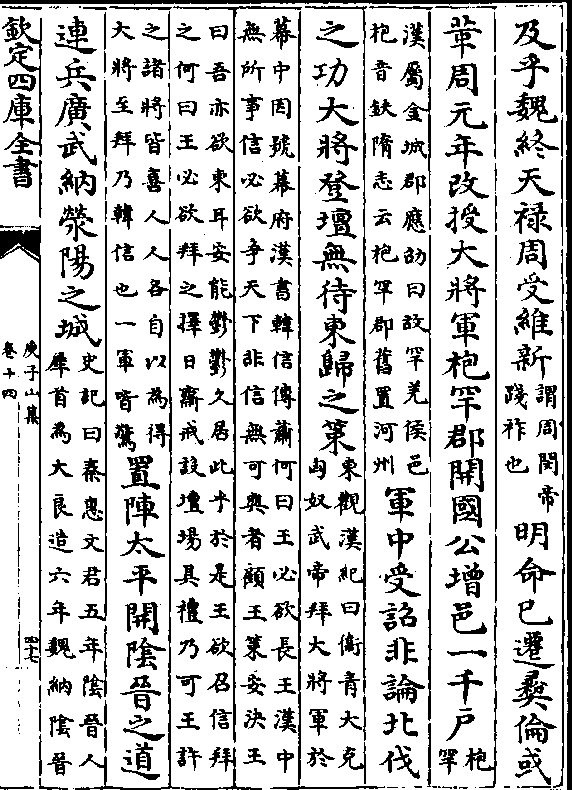 及乎魏終天禄周受維新謂周閔帝踐祚也明命已遷彛倫或
革周元年改授大將軍枹罕郡開國公增邑一千戸枹罕
漢屬金城郡應劭曰故罕羌侯邑枹音鈇隋志云枹罕郡舊置河州軍中受詔非論北伐
之功大將登壇無待東歸之策東觀漢紀曰衞青大克匈奴武帝拜大將軍於
幕中因號幕府漢書韓信傳蕭何曰王必欲長王漢中無所事信必欲爭天下非信無可與者顧王策安決王
曰吾亦欲東耳安能鬱鬱久居此乎於是王欲召信拜之何曰王必欲拜之擇日齋戒設壇場具禮乃可王許
之諸將皆喜人人各自以為得大將至拜乃韓信也一軍皆驚置陣太平開陰晉之道
連兵廣武納滎陽之城史記曰秦惠文君五年陰晉人犀首為大良造六年魏納陰晉
欽定四庫全書
庾子山集
卷十四
四十七